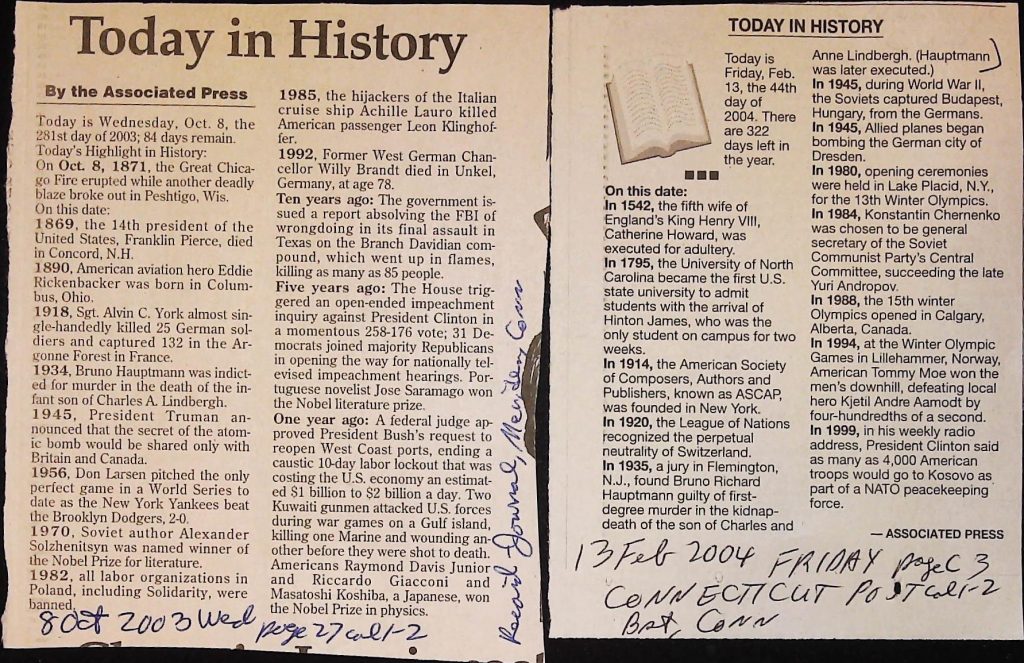 Today in History
By the Associated Press
Today is Wednesday, Oct. 8, the
281st day of 2003; 84 days remain.
Today's Highlight in History:
On Oct. 8, 1871, the Great Chica-
go Fire erupted while another deadly
blaze broke out in Peshtigo, Wis.
On this date:
1869, the 14th president of the
United States, Franklin Pierce, died
in Concord, N.H.
1890, American aviation hero Eddie
Rickenbacker was born in Colum-
bus, Ohio.
1918, Sgt. Alvin C. York almost sin-
gle-handedly killed 25 German sol-
diers and captured 132 in the Ar-
gonne Forest in France.
1934, Bruno Hauptmann was indict-
ed for murder in the death of the in-
fant son of Charles A. Lindbergh.
1945, President Truman an-
nounced that the secret of the atom-
ic bomb would be shared only with
Britain and Canada.
1956, Don Larsen pitched the only
perfect game in a World Series to
date as the New York Yankees beat
the Brooklyn Dodgers, 2-0.
1970, Soviet author Alexander
Solzhenitsyn was named winner of
the Nobel Prize for literature.
1982, all labor organizations in
Poland, including Solidarity, were
banned.
1985, the hijackers of the Italian
cruise ship Achille Lauro killed
American passenger Leon Klinghof-
fer.
1992, Former West German Chan-
cellor Willy Brandt died in Unkel,
Germany, at age 78.
Ten years ago: The government is-
sued a report absolving the FBI of
wrongdoing in its final assault in
Texas on the Branch Davidian com-
pound, which went up in flames,
killing as many as 85 people.
Five years ago: The House trig-
gered an open-ended impeachment
inquiry against President Clinton in
a momentous 258-176 vote; 31 De-
mocrats joined majority Republicans
in opening the way for nationally tel-
evised impeachment hearings. Por-
tuguese novelist Jose Saramago won
the Nobel literature prize.
One year ago: A federal judge ap-
proved President Bush's request to
reopen West Coast ports, ending a
caustic 10-day labor lockout that was
costing the U.S. economy an estimat-
ed $1 billion to $2 billion a day. Two
Kuwaiti gunmen attacked U.S. forces
during war games on a Gulf island,
killing one Marine and wounding an-
other before they were shot to death.
Americans Raymond Davis Junior
and Riccardo Giacconi and
Masatoshi Koshiba, a Japanese, won
the Nobel Prize in physics.
8 Oct 2003 Wed page 27 col 1-2
Record Journal, Meriden Conn
TODAY IN HISTORY
Today is
Friday, Feb.
13, the 44th
day of
2004. There
are 322
days left in
the year.
On this date:
In 1542, the fifth wife of
England's King Henry VIII,
Catherine Howard, was
executed for adultery.
In 1795, the University of North
Carolina became the first U.S.
state university to admit
students with the arrival of
Hinton James, who was the
only student on campus for two
weeks.
In 1914, the American Society
of Composers, Authors and
Publishers, known as ASCAP,
was founded in New York.
In 1920, the League of Nations
recognized the perpetual
neutrality of Switzerland.
In 1935, a jury in Flemington,
N.J., found Bruno Richard
Hauptmann guilty of first-
degree murder in the kidnap-
death of the son of Charles and
Anne Lindbergh. (Hauptmann
was later executed.)
In 1945, during World War II,
the Soviets captured Budapest,
Hungary, from the Germans.
In 1945, Allied planes began
bombing the German city of
Dresden.
In 1980, opening ceremonies
were held in Lake Placid, N.Y.,
for the 13th Winter Olympics.
In 1984, Konstantin Chernenko
was chosen to be general
secretary of the Soviet
Communist Party's Central
Committee, succeeding the late
Yuri Andropov.
In 1988, the 15th winter
Olympics opened in Calgary,
Alberta, Canada.
In 1994, at the Winter Olympic
Games in Lillehammer, Norway,
American Tommy Moe won the
men's downhill, defeating local
hero Kjetil Andre Aamodt by
four-hundredths of a second.
In 1999, in his weekly radio
address, President Clinton said
as many as 4,000 American
troops would go to Kosovo as
part of a NATO peacekeeping
force.
— ASSOCIATED PRESS
13 Feb 2004 FRIDAY page C 3
CONNECTICUT POST col 1-2
Bpt, CONN